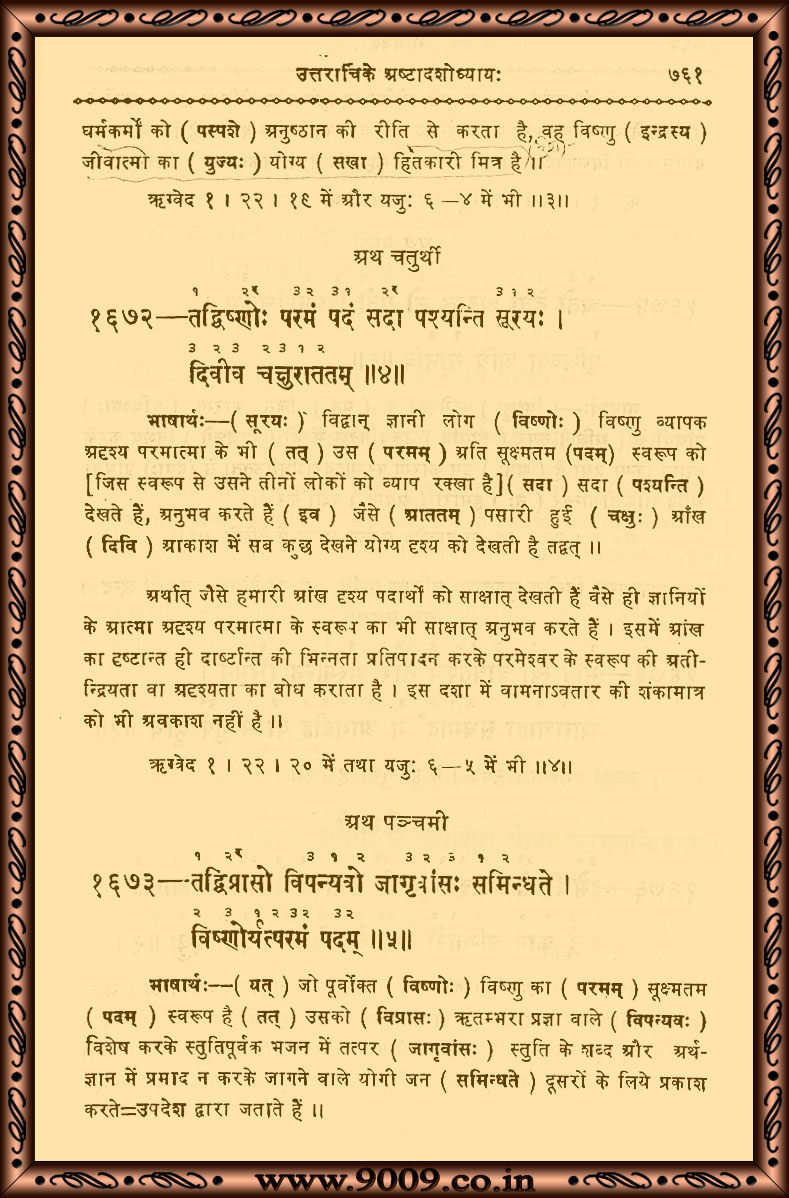 उत्तरार्चिके अष्टादशोध्यायः ७६१
धर्मकर्मों को ( पस्पशे ) अनुष्ठान की रीति से करता है, वह विष्णु ( इन्द्रस्य )
जीवात्मा का ( युज्यः ) योग्य ( सखा ) हितकारी मित्र है ॥
ऋग्वेद १ । २२ । १९ में और यजुः ६—४ में भी ॥३॥
अथ चतुर्थी
१ २र ३२ ३१ २र ३१२
१६७२—तद्विष्णोः परमं पदं सदा पश्यन्ति सूरयः ।
३ २ ३ २ ३ १ २
दिवीव चक्षुराततम् ॥४॥
भाषार्थः—( सूरयः ) विद्वान् ज्ञानी लोग ( विष्णोः ) विष्णु व्यापक
अदृश्य परमात्मा के भी ( तत् ) उस ( परमम् ) अति सूक्ष्मतम (पदम्) स्वरूप को
[जिस स्वरूप से उसने तीनों लोकों को व्याप रक्खा है]( सदा ) सदा ( पश्यन्ति )
देखते हैं, अनुभव करते हैं ( इव ) जैसे ( आततम् ) पसारी हुई ( चक्षुः ) आँख
( दिवि ) आकाश में सब कुछ देखने योग्य दृश्य को देखती है तद्वत् ॥
अर्थात् जैसे हमारी आंख दृश्य पदार्थों को साक्षात् देखती हैं वैसे ही ज्ञानियों
के आत्मा अदृश्य परमात्मा के स्वरूप का भी साक्षात् अनुभव करते हैं । इसमें आंख
का दृष्टान्त ही दार्ष्टान्त की भिन्नता प्रतिपादन करके परमेश्वर के स्वरूप की अती-
न्द्रियता वा अदृश्यता का बोध कराता है । इस दशा में वामनाऽवतार की शंकामात्र
को भी अवकाश नहीं है ॥
ऋग्वेद १ । २२ । २० में तथा यजुः ६—५ में भी ॥४॥
अथ पञ्चमी
१ २र ३ १ २ ३ २ ३ १ २
१६७३—तद्विप्रासो विपन्यवो जागृवांसः समिन्धते ।
२ ३ १ २ ३२ ३२
विष्णोर्यत्परमं पदम् ॥५॥
भाषार्थः—( यत् ) जो पूर्वोक्त ( विष्णोः ) विष्णु का ( परमम् ) सूक्ष्मतम
( पदम् ) स्वरूप है ( तत् ) उसको ( विप्रासः ) ऋतम्भरा प्रज्ञा वाले ( विपन्यवः )
विशेष करके स्तुतिपूर्वक भजन में तत्पर ( जागृवांसः ) स्तुति के शब्द और अर्थ-
ज्ञान में प्रमाद न करके जागने वाले योगी जन ( समिन्धते ) दूसरों के लिये प्रकाश
करते=उपदेश द्वारा जताते हैं ॥
www.9009.co.in